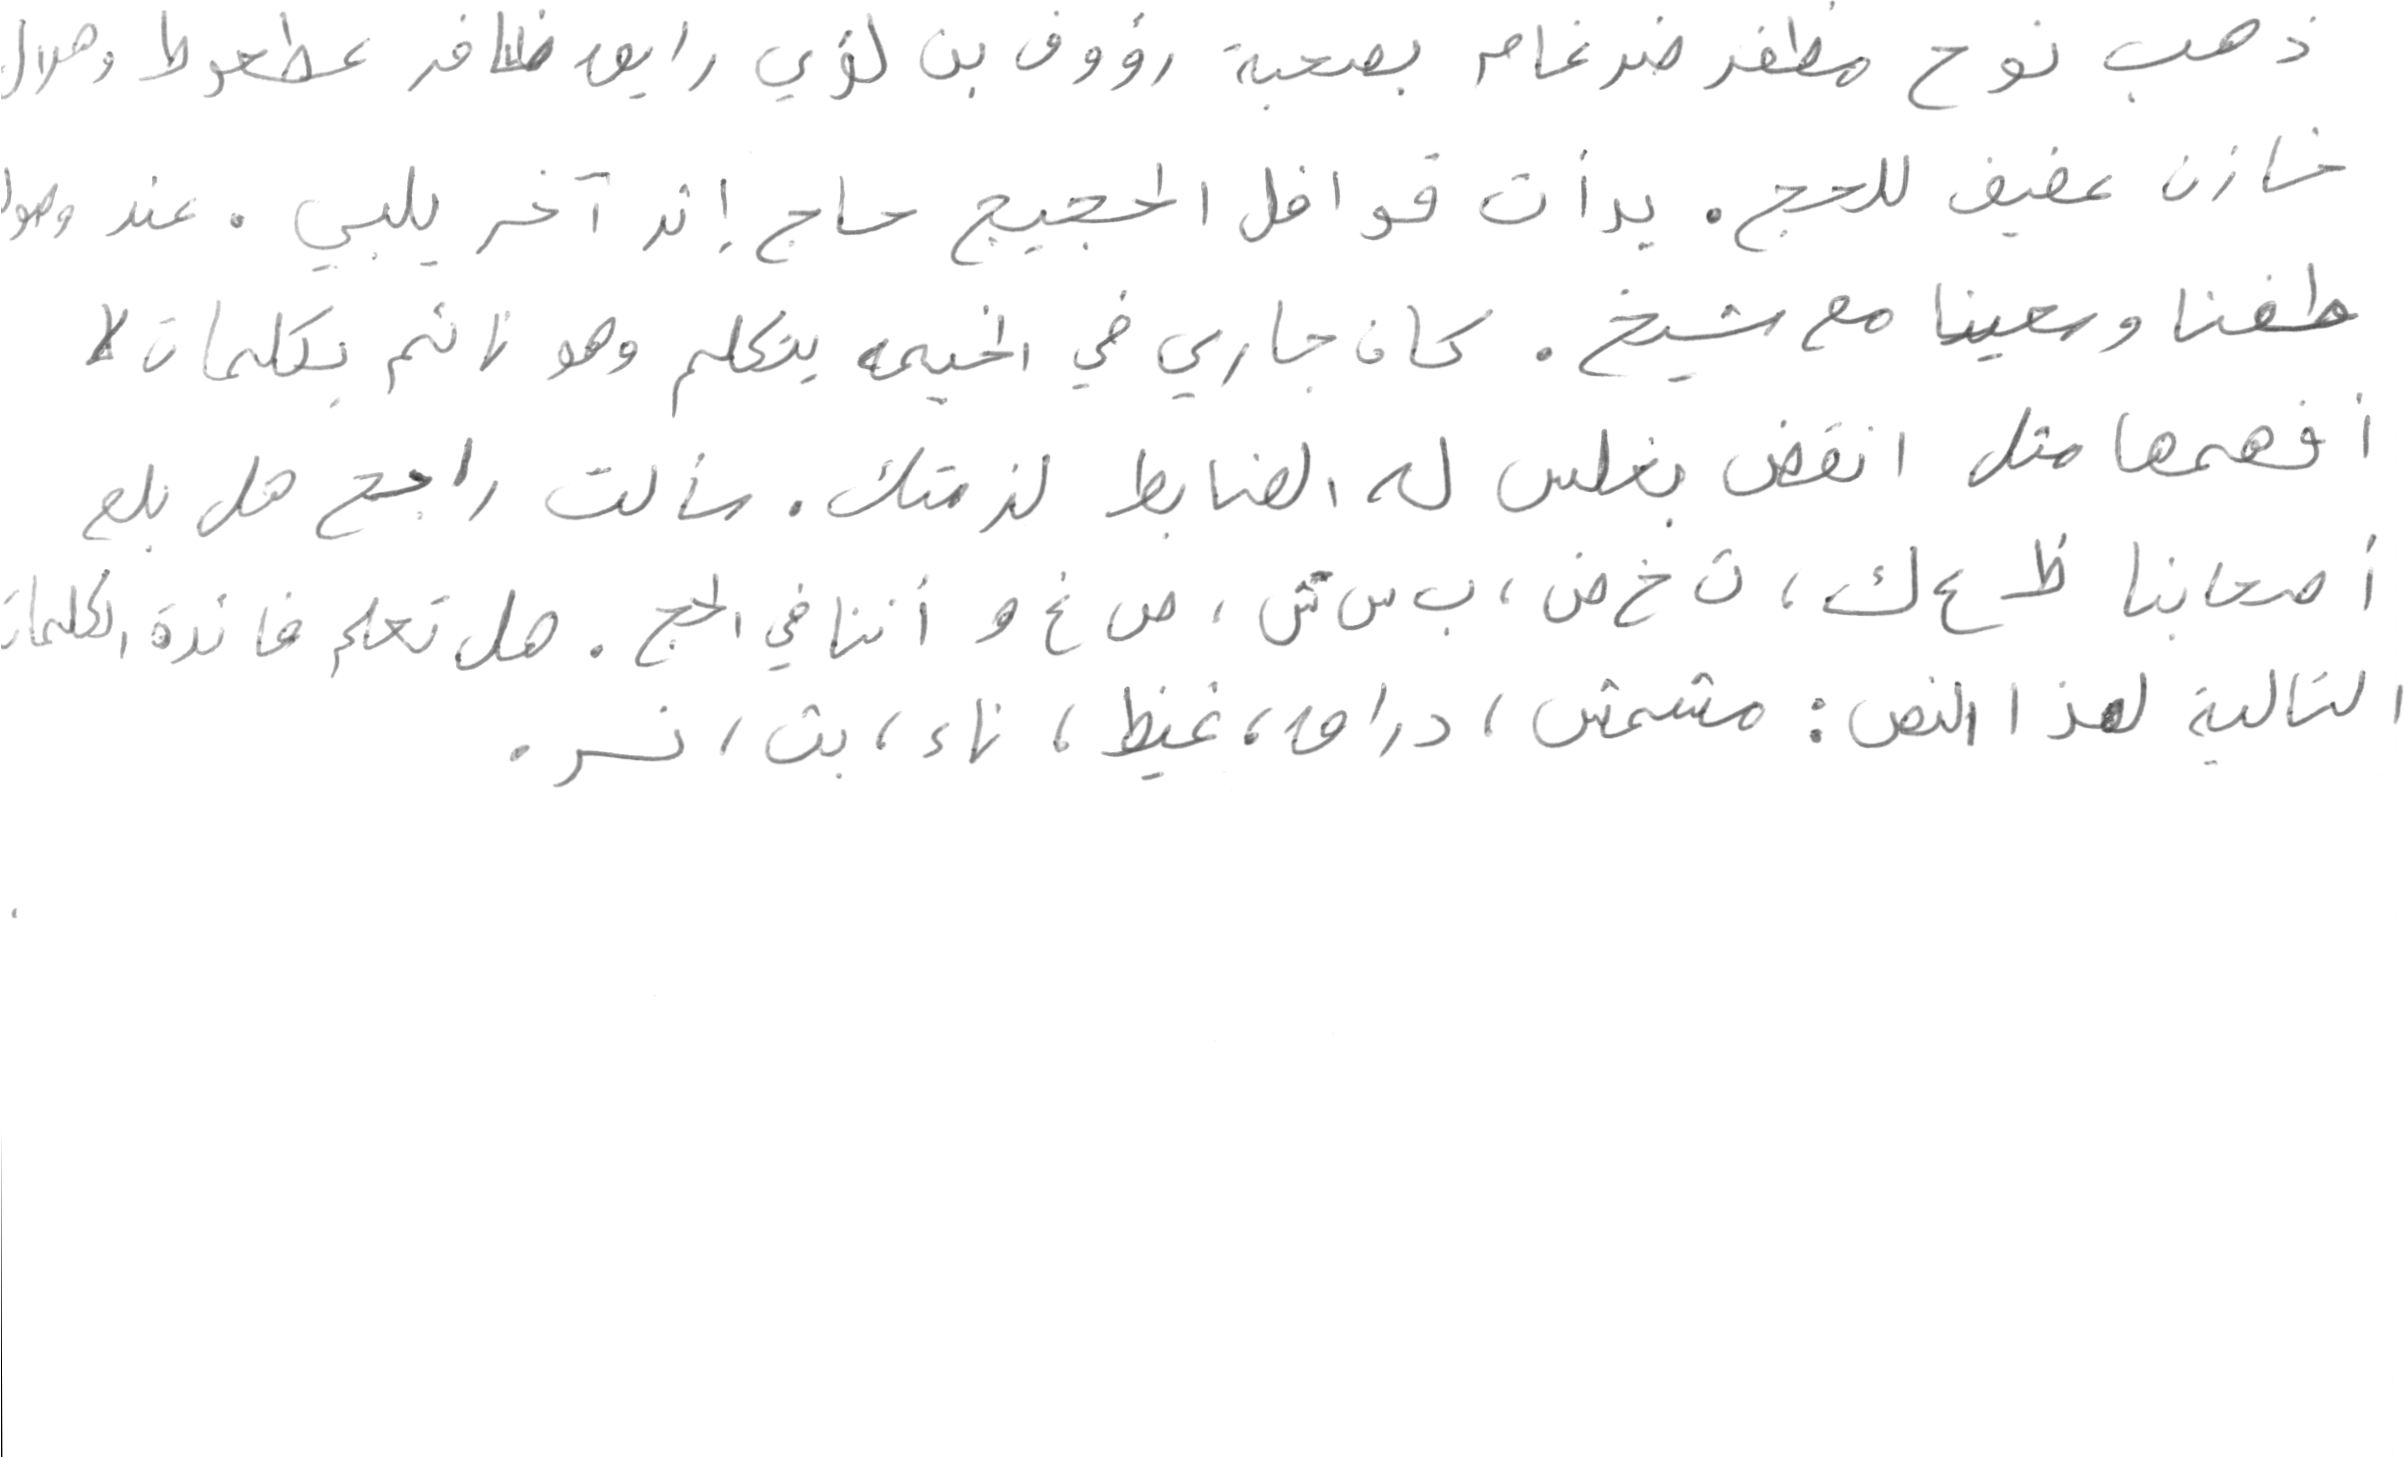 ذهب نوح مظفر ضرغام بصحبة رؤوف بن لؤي رايق ظافر عطعوط وهلال
خازن عفيف للحج. بدأت قوافل الحجيج حاج إثر آخر يلبي. عند وصولنا
طفنا وسعينا مع شيخ. كان جاري في الخيمه يتكلم وهو نائم بكلمات لا
أفهمها مثل انقض بغلس له الضابط لذمتك. سألت راجح هل بلع
أصحابنا ظ ع ك، ث خ ض، ب س ش، ص غ و أننا في الحج. هل تعلم فائدة الكلمات
التالية لهذا النص: مشمش، دراق، غيظ، ناء، بث، نسر.